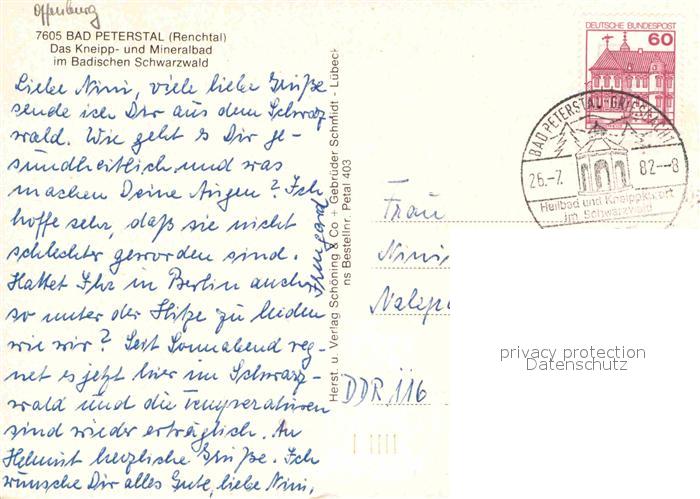 Offenburg
7605 BAD PETERSTAL (Renchtal)
Das Kneipp- und Mineralbad
im Badischen Schwarzwald
Liebe Nini, viele liebe Grüße
sende ich Dir aus dem Schwarz
wald. Wie geht es Dir ge-
sundheitlich und was
machen Deine Augen? Ich
hoffe sehr, daß sie nicht
schlechter geworden sind.
Hattet Ihr in Berlin auch
so unter der Hitze zu leiden
wie wir? Seit Sonnabend reg-
net es jetzt hier im Schwarz-
wald und die Temperaturen
sind wieder erträglich. An
Helmut herzliche Grüße. Ich
wünsche Dir alles Gute, liebe Nini,
Irmgard
Herst. u. Verlag Schöning & Co + Gebrüder Schmidt - Lübeck
ns Bestellnr. Petal 403
DEUTSCHE BUNDESPOST
60
BAD PETERSTAL-GRIESBACH
26.-7. 82--8
Heilbad und Kneippkurort
im Schwarzwald
Frau
Nini
DDR 116
privacy protection
Datenschutz